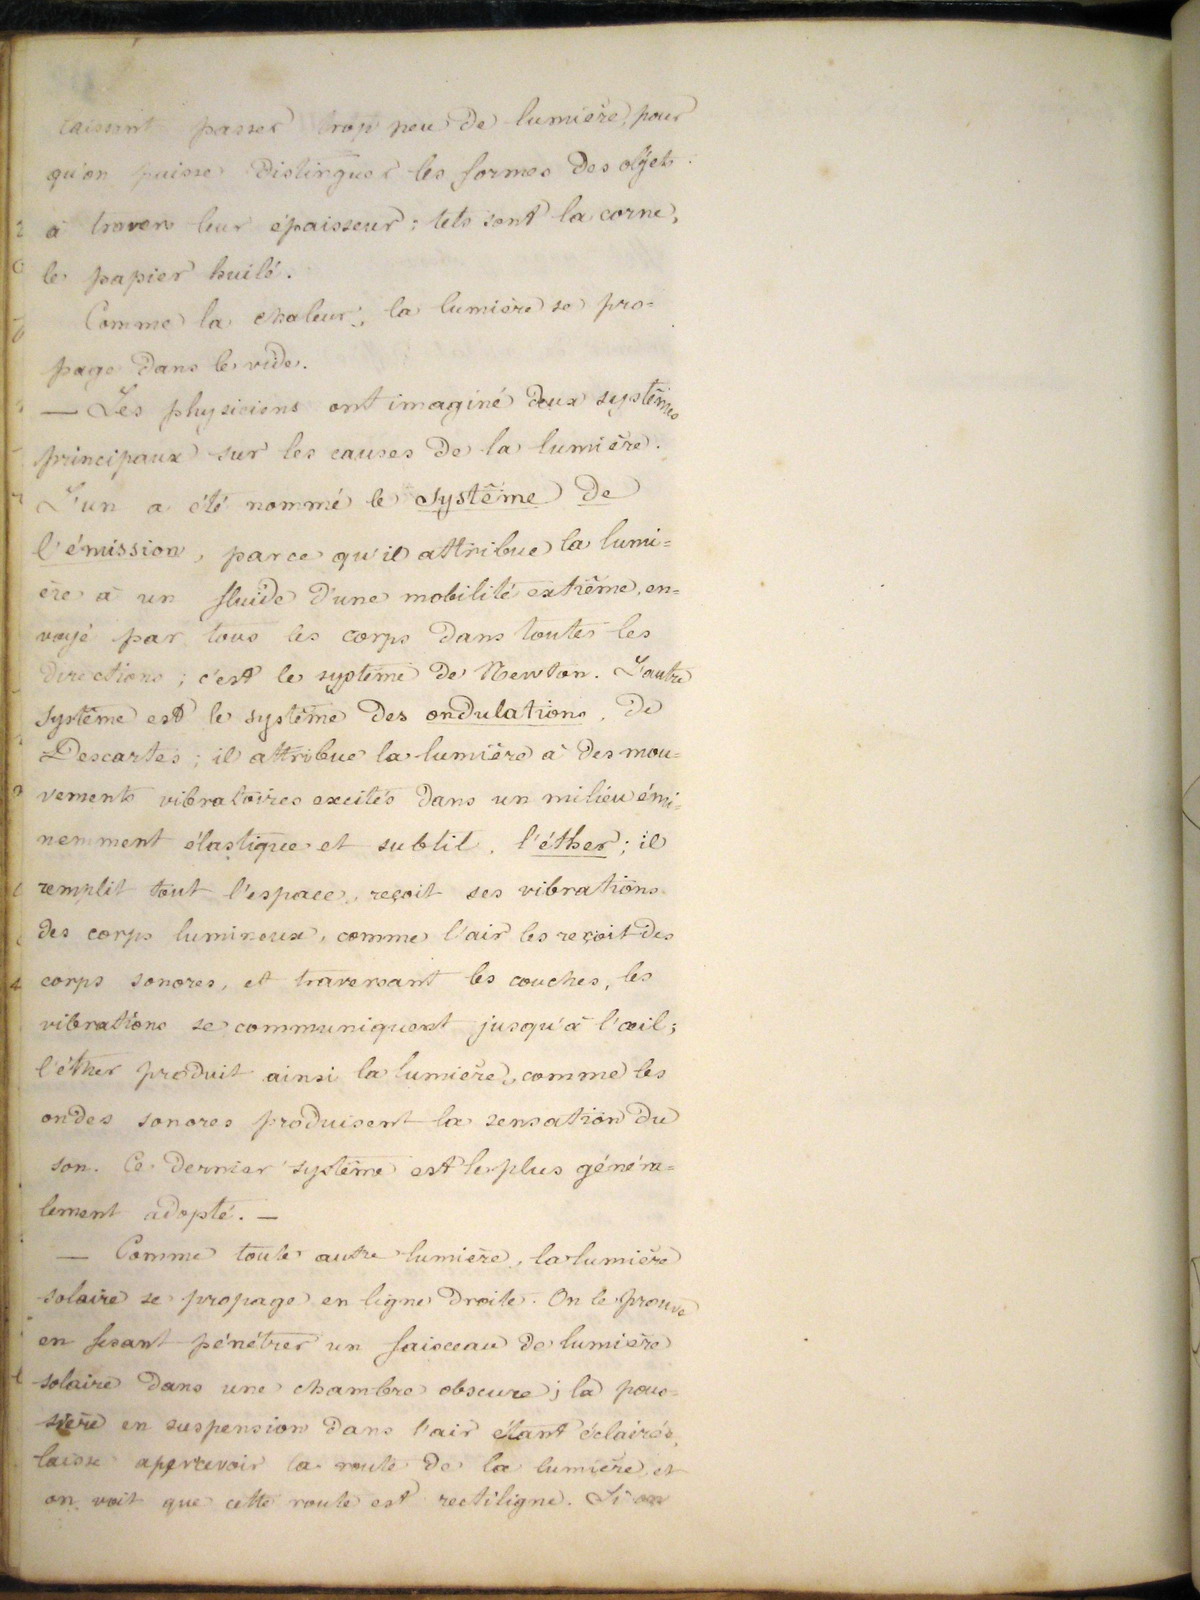 laissant passer trop peu de lumière, pour
qu'on puisse distinguer les formes des objets
à travers leur épaisseur ; tels sont la corne,
le papier huilé.
Comme la chaleur, la lumière se pro=
page dans le vide.
— Les physiciens ont imaginé deux systèmes
principaux sur les causes de la lumière.
L'un a été nommé le système de
l'émission, parce qu'il attribue la lumi=
ère à un fluide d'une mobilité extrême, en=
voyé par tous les corps dans toutes les
directions ; c'est le système de Newton. L'autre
système est le système des ondulations, de
Descartes ; il attribue la lumière à des mou=
vements vibratoires excités dans un milieu émi=
nemment élastique et subtil, l'éther ; il
remplit tout l'espace, reçoit ses vibrations
des corps lumineux, comme l'air les reçoit des
corps sonores, et traversant les couches, les
vibrations se communiquent jusqu'à l'œil ;
l'éther produit ainsi la lumière, comme les
ondes sonores produisent la sensation du
son. Ce dernier système est le plus généra=
lement adopté. —
— Comme toute autre lumière, la lumière
solaire se propage en ligne droite. On le prouve
en fesant pénétrer un faisceau de lumière
solaire dans une chambre obscure ; la pous=
sière en suspension dans l'air étant éclairée,
laisse apercevoir la route de la lumière, et
on voit que cette route est rectiligne. Si on